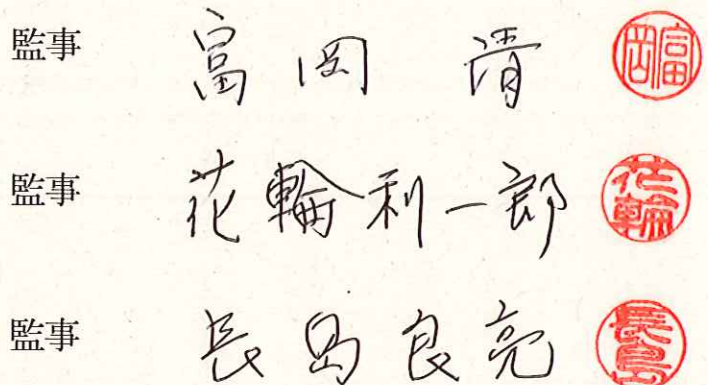 監事 富岡 清 富岡
監事 花輪利一郎 花輪
監事 長島良亮 長島